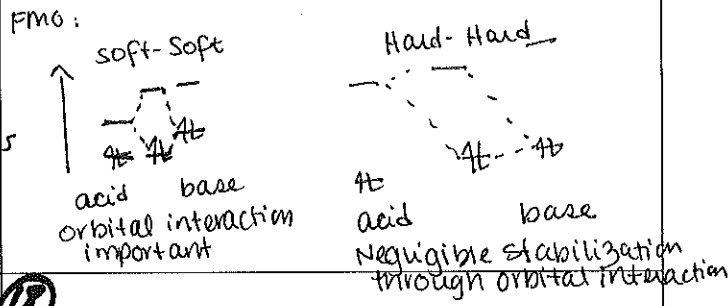 FMO:
soft-soft
Hard-Hard
acid base
orbital interaction
important
acid base
Negligible stabilization
through orbital interaction